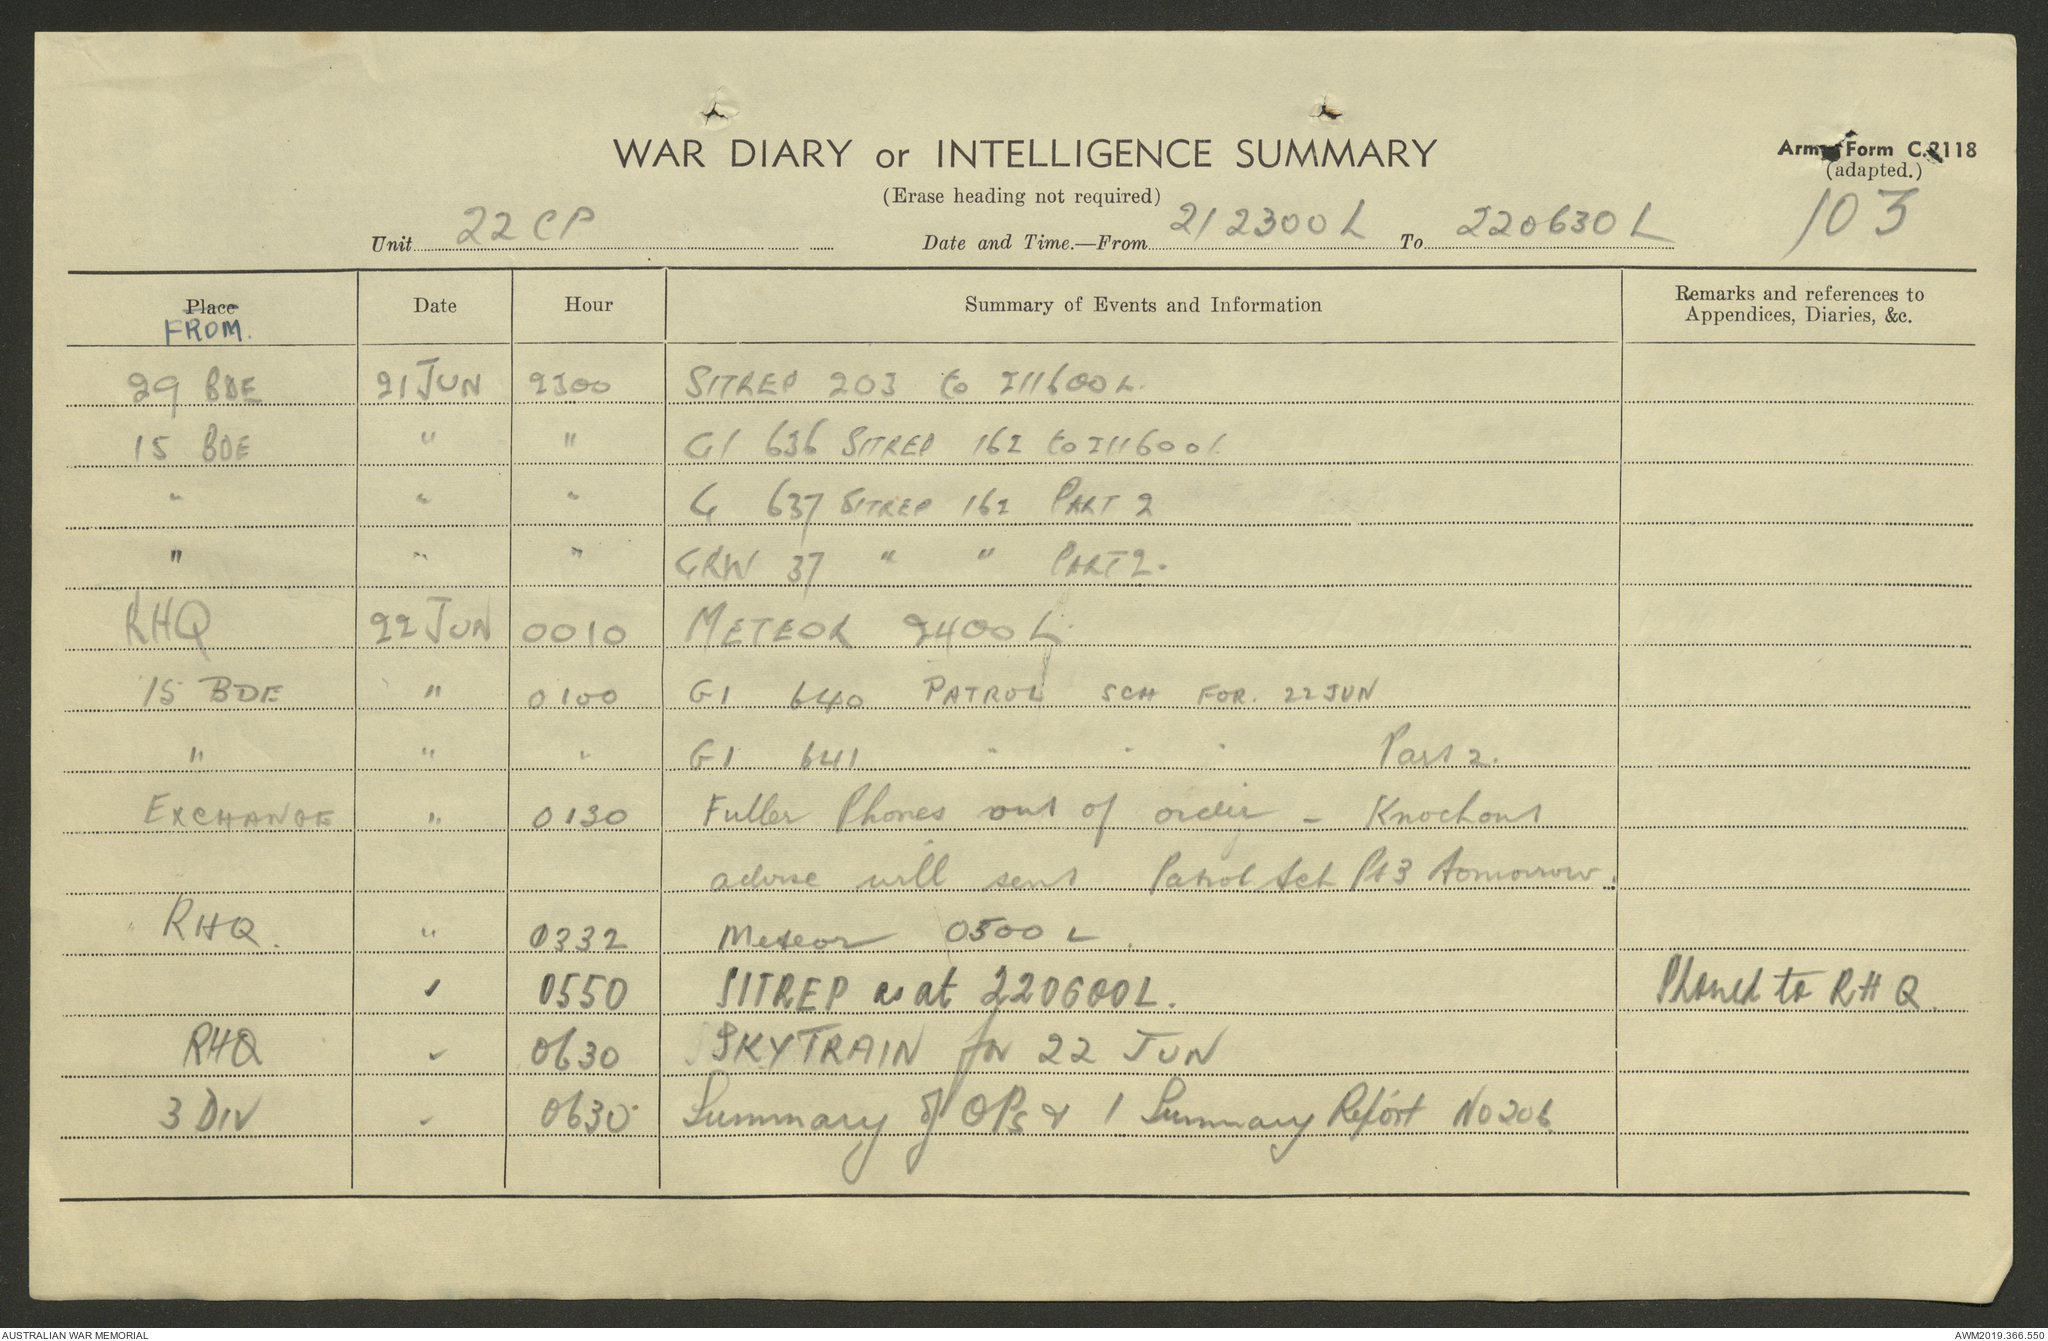 WAR DIARY or INTELLIGENCE SUMMARY
Army Form C.2118
(adapted.)
(Erase heading not required)
103
Unit 22 CP Date and Time.—From 212300L To 220630L
Place Date Hour Summary of Events and Information Remarks and references to Appendices, Diaries, &c.
FROM.
29 BDE 21 JUN 2300 SITREP 203 to 211600L.
15 BDE " " G1 636 SITREP 162 to 211600L
" " " G 637 SITREP 162 PART 2
" " " GRW 37 " " PART 2.
RHQ 22 JUN 0010 METEOR 2400 L.
15 BDE " 0100 G1 640 PATROL SCH FOR. 22 JUN
" " " G1 641 " " " Part 2.
EXCHANGE " 0130 Fuller Phones out of order - Knockout
advise will sent Patrol Sch Pt 3 tomorrow.
RHQ. " 0332 Meteor 0300 L.
" 0550 SITREP as at 220600L. Phoned to RHQ.
RHQ " 0630 SKYTRAIN for 22 JUN
3 DIV " 0630 Summary of OPs & 1 Summary Report No 206
AUSTRALIAN WAR MEMORIAL
AWM2019.366.550